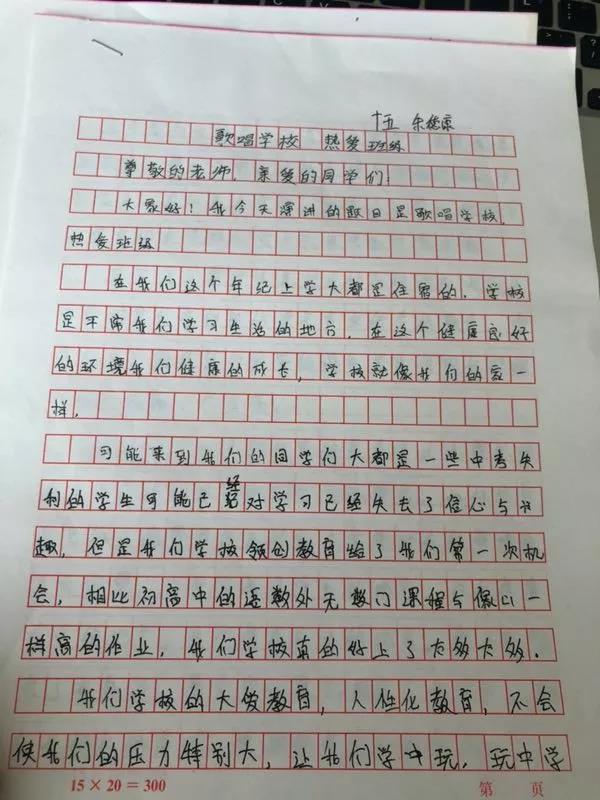 十五 乐德康
歌唱学校 热爱班级
尊敬的老师,亲爱的同学们!
大家好!我今天演讲的题目是歌唱学校,
热爱班级
在我们这个年纪上学大都是住宿的,学校
是平常我们学习生活的地方,在这个健康良好
的环境我们健康的成长,学校就像我们的家一
样,
可能来到我们的同学们大都是一些中考失
利的学生可能已经对学习已经失去了信心与兴
趣,但是我们学校领创教育给了我们第一次机
会,相比初高中的语数外无数门课程与像山一
样高的作业,我们学校真的好上了太多太多.
我们学校的大爱教育,人性化教育,不会
使我们的压力特别大,让我们学中玩,玩中学
15×20=300 第 页